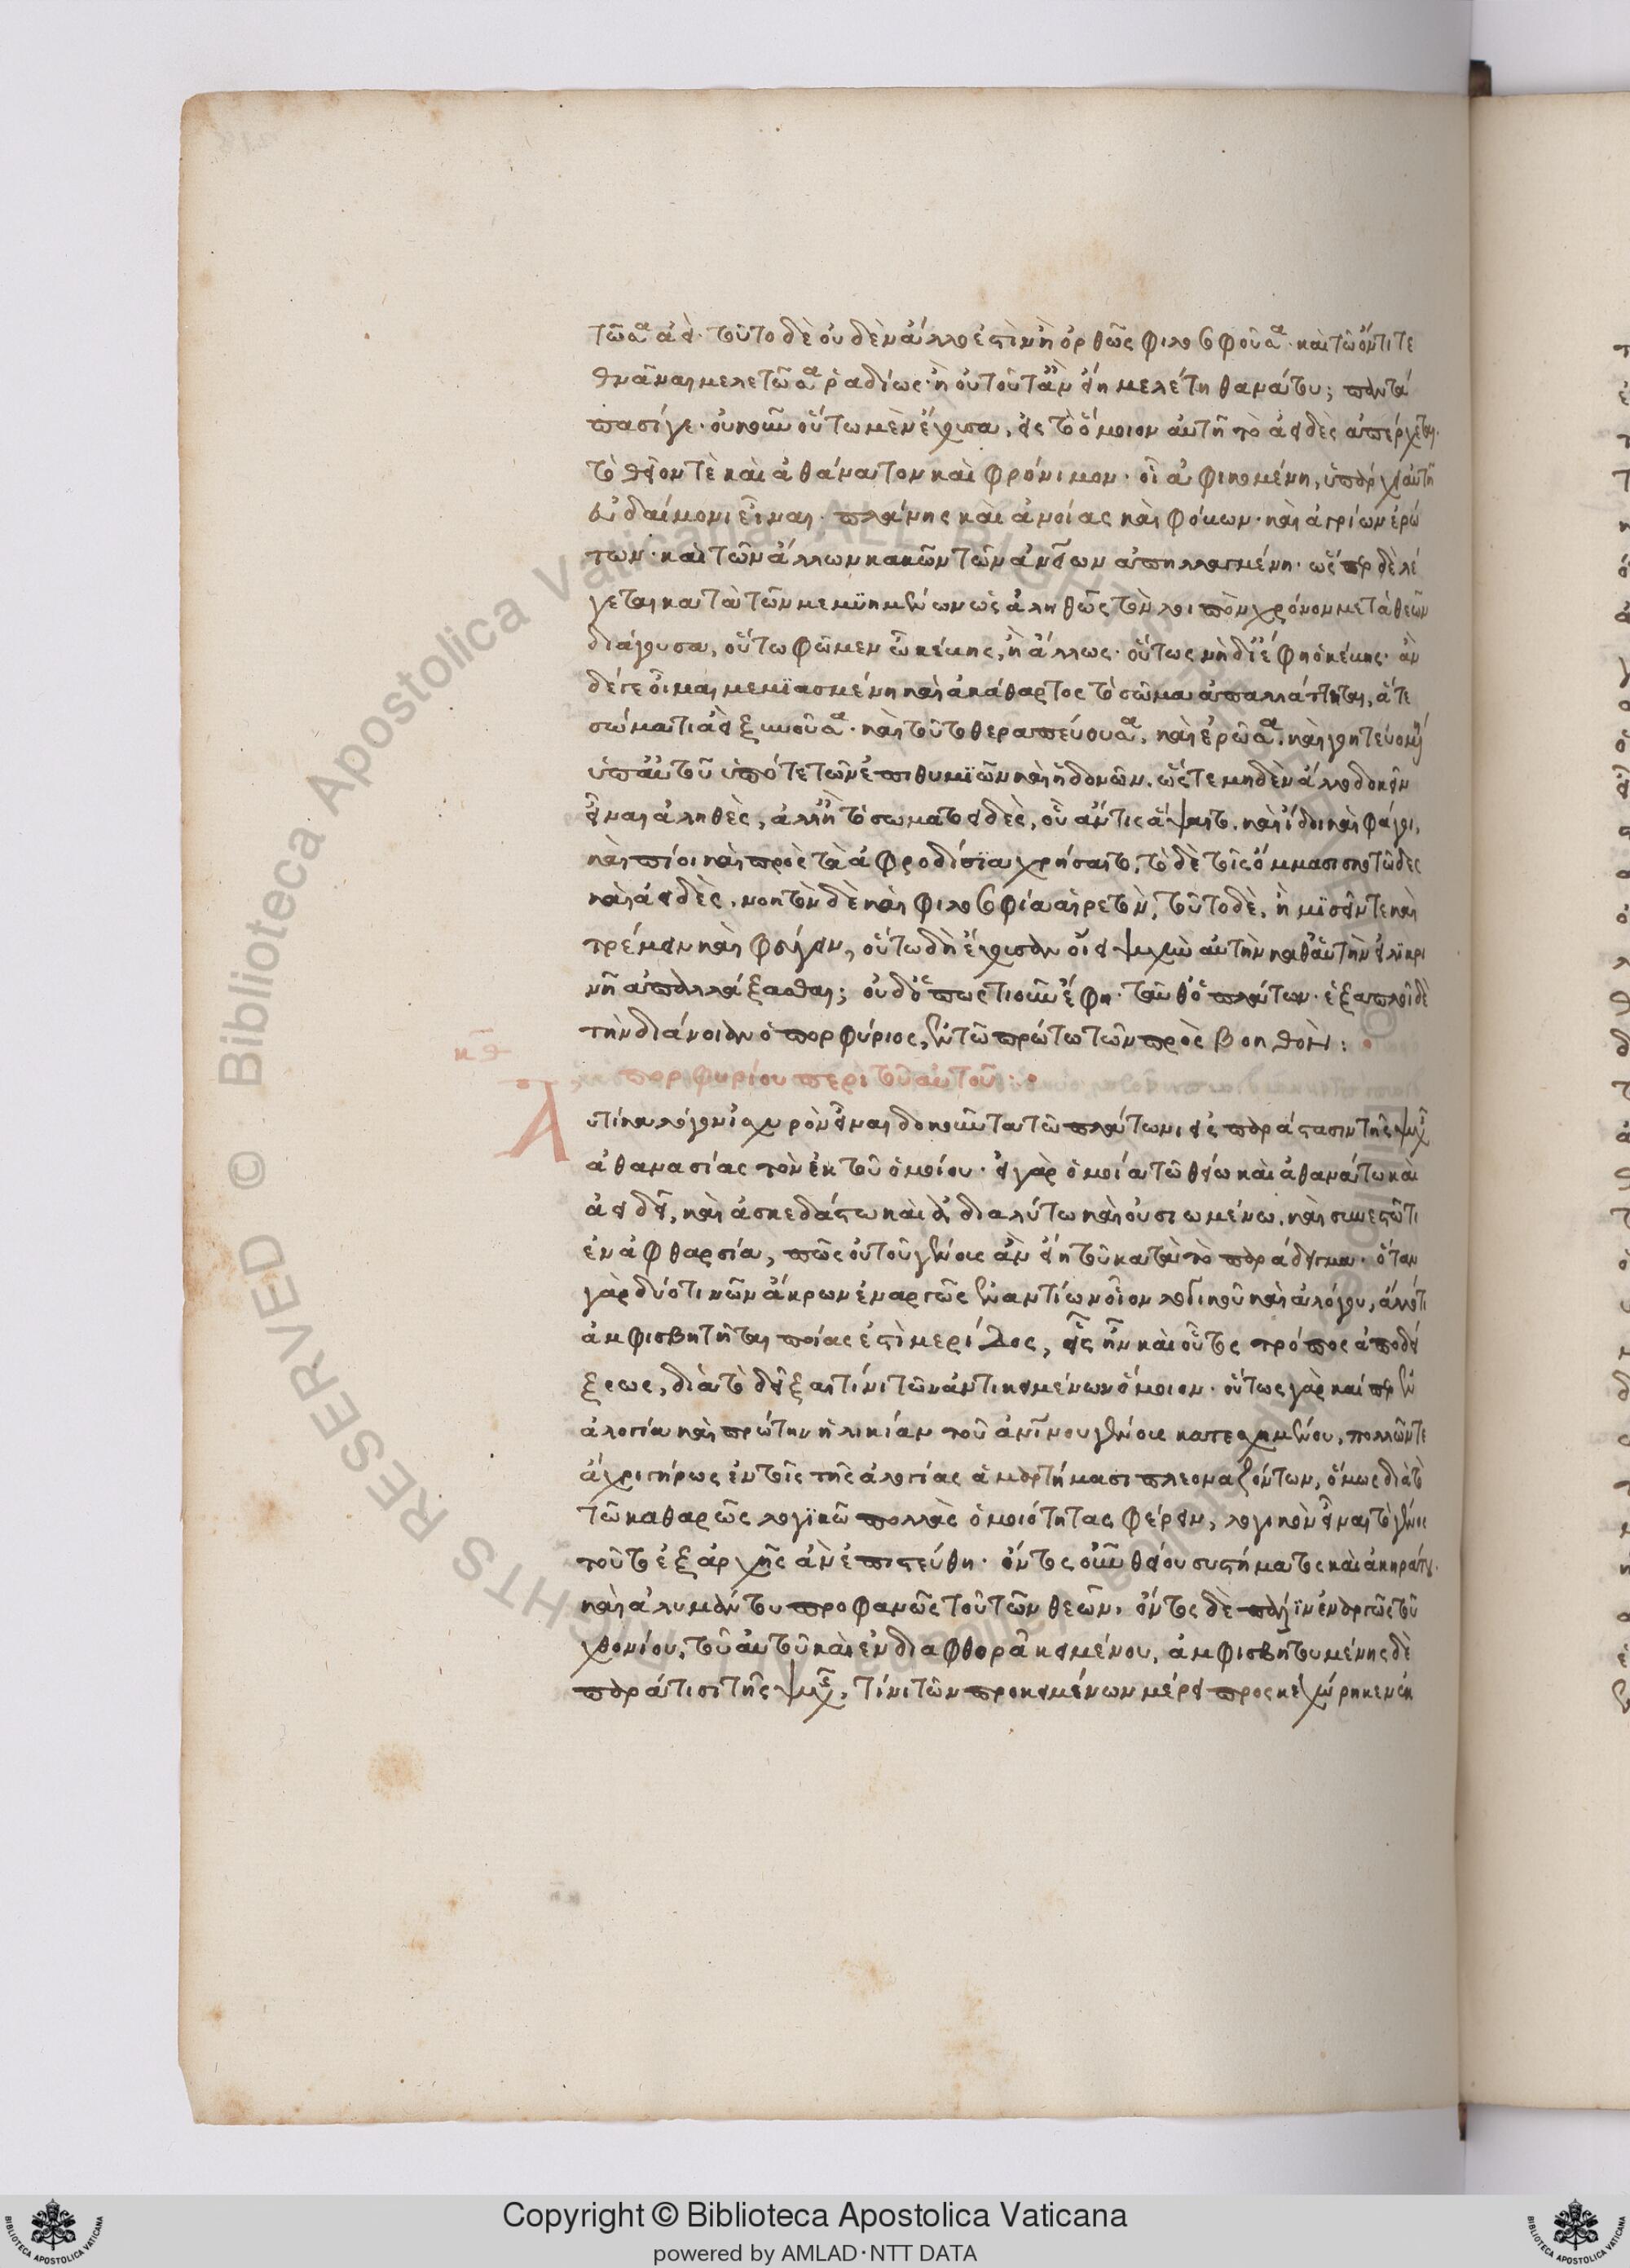 τῶσα ἀεί· τοῦτο δὲ οὐδὲν ἄλλο ἐστὶν ἢ ὀρθῶς φιλοσοφοῦσα· καὶ τῶ ὄντι τε
θνᾶναι μελετῶσα ῥαδίως· ἢ οὐ τοῦτ' ἂν εἴη μελέτη θανάτου; παντά
πασί γε· οὐκοῦν οὕτω μὲν ἔχουσα, εἰς τὸ ὅμοιον αὐτῆ τὸ ἀειδὲς ἀπέρχεται·
τὸ θεῖον τὲ καὶ ἀθάνατον καὶ φρόνιμον· οἷ ἀφικομένη, ὑπάρχει αὐτῆ
εὐδαίμονι εἶναι· πλάνης καὶ ἀνοίας καὶ φόβων· καὶ ἀγρίων ἐρώ
των· καὶ τῶν ἄλλων κακῶν τῶν ἀνείων ἀπηλλαγμένη· ὥσπερ δὲ λέ
γεται κατὰ τῶν μεμϋημένων ὡς ἀληθῶς τὸν λοιπὸν χρόνον μετὰ θεῶν
διάγουσα, οὕτω φῶμεν ὦ κέβης, ἢ ἄλλως· οὕτως νὴ δί' ἔφη ὁ κέβης· ἂν
δέ γε οἶμαι μεμϊασμένη καὶ ἀκάθαρτος τὸ σῶμα ἀπαλλάττηται, ἅτε
σώματι ἀεὶ ξυνοῦσα· καὶ τοῦτο θεραπεύουσα, καὶ ἐρῶσα, καὶ γοητευομένη
ὑπ' αὐτοῦ ὑπό τε τῶν ἐπιθυμϊῶν καὶ ἡδονῶν, ὥστε μηδὲν ἄλλο δοκεῖν
εἶναι ἀληθὲς, ἀλλ' ἢ τὸ σωματοειδὲς, οὗ ἄν τις ἅψαιτο, καὶ ἴδοι καὶ φάγοι,
καὶ πίοι καὶ πρὸς τὰ ἀφροδίσϊα χρήσαιτο, τὸ δὲ τοῖς ὄμμασι σκοτῶδες
καὶ ἀειδὲς, νοητὸν δὲ καὶ φιλοσοφία αἱρετὸν, τοῦτο δὲ, ἢ μϊσεῖν τε καὶ
τρέμειν καὶ φεύγειν, οὕτω δὴ ἔχουσαν οἴει ψυχὴν αὐτὴν καθ' αὑτὴν εἰλϊκρι
νῆ ἀπαλλάξασθαι; οὐδ' ὅπως τιοῦν ἔφη· ταῦθ' ὁ πλάτων· ἐξαπλοῖ δὲ
τὴν διάνοιαν ὁ πορφύριος, ἐν τῶ πρώτω τῶν πρὸς βοηθόν:
κθ
πορφυρίου περὶ τοῦ αὐτοῦ:
Αὐτίκα λόγον ἰσχυρὸν εἶναι δοκοῦντα τῶ πλάτωνι εἰς παράστασιν τῆς ψυχῆς
ἀθανασίας τὸν ἐκ τοῦ ὁμοίου· εἰ γὰρ ὁμοία τῶ θείω καὶ ἀθανάτω καὶ
ἀειδεῖ, καὶ ἀσκεδάστω καὶ ἀδιαλύτω καὶ οὐσιωμένω, καὶ συνεστῶτι
ἐν ἀφθαρσία, πῶς οὐ τοῦ γένους ἂν εἴη τοῦ κατὰ τὸ παράδειγμα· ὅταν
γὰρ δύό τινῶν ἄκρων ἐναργῶς ἐναντίων οἷον λογικοῦ καὶ ἀλόγου, ἄλλό τι
ἀμφισβητῆται ποίας ἐστὶ μερίδος, εἷς ἦν καὶ οὗτος τρόπος ἀποδεί
ξεως, διὰ τὸ δεῖξαι τίνι τῶν ἀντικειμένων ὅμοιον· οὕτως γὰρ καίπερ ἐν
ἀλογία κατὰ πρώτην ἡλικίαν τοῦ ἀνΐνου γένους κατεχομένου, πολλῶν τε
ἄχρι γήρως ἐν τοῖς τῆς ἀλογίας ἁμαρτήμασι πλεοναζόντων, ὅμως διὰ τὸ
τῶ καθαρῶς λογϊκῶ πολλὰς ὁμοιότητας φέρειν, λογικὸν εἶναι τὸ γένος
τοῦτο ἐξ ἀρχῆς ἀνεπιστεύθη· ὄντος οὖν θείου συστήματος καὶ ἀκηράτου
καὶ ἀλυμάντου προφανῶς τοῦ τῶν θεῶν, ὄντος δὲ πάλϊν ἐναργῶς τοῦ
χθονίου, τοῦ αὐτοῦ καὶ ἐν διαφθορᾶ κειμένου, ἀμφισβητουμένης δὲ
παρά τισι τῆς ψυχῆς, τίνι τῶν προκειμένων μέρει προσκεχώρηκεν ἐκ